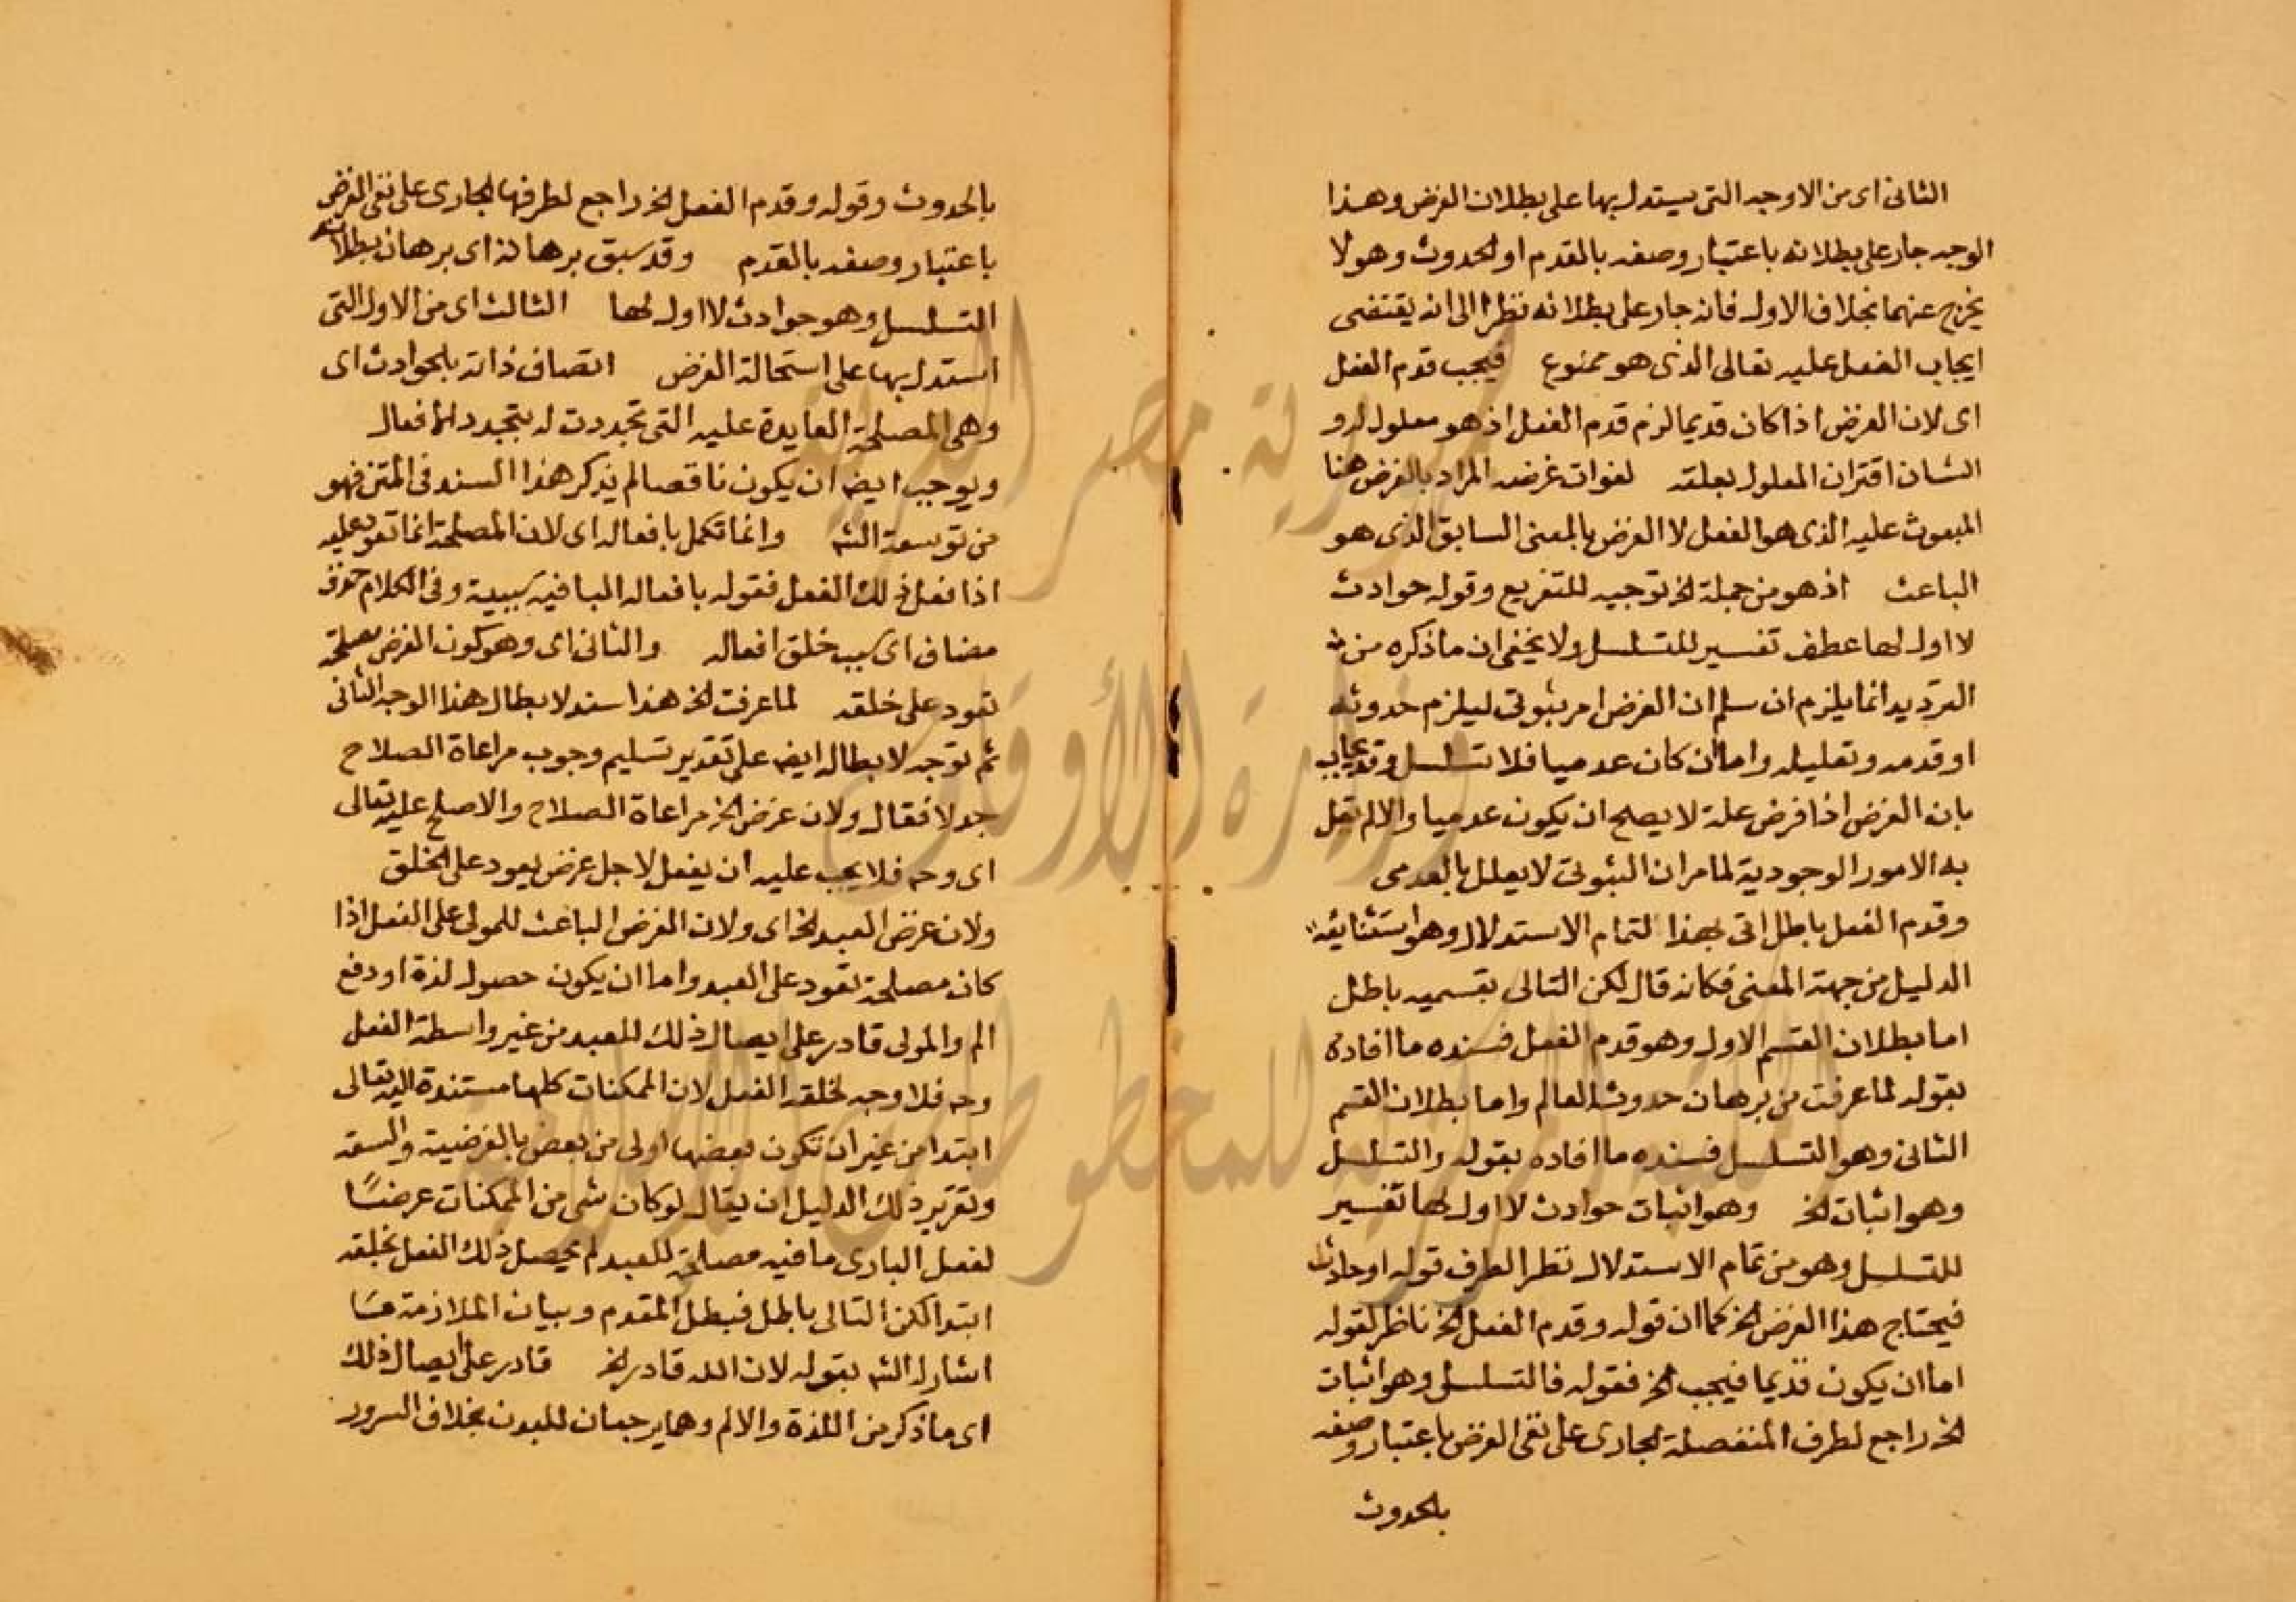 الثانى اى من الاوجه التى يستدل بها على بطلان الغرض وهذا
الوجه جار على بطلانه باعتبار وصفه بالقدم او الحدوث وهو لا
يخرج عنهما بخلاف الاول فانه جار على بطلانه نظرا الى انه يقتضى
ايجاب الفعل عليه تعالى الذى هو ممنوع فيجب قدم الفعل
اى لان الغرض اذا كان قديما لزم قدم الفعل اذ هو معلول له و
الشان اقتران المعلول بعلته لفوات غرضه المراد بالغرض هنا
المبعوث عليه الذى هو الفعل لا الغرض بالمعنى السابق الذى هو
الباعث اذ هو من جملة الخ توجيه للتفريع وقوله حوادث
لا اول لها عطف تفسير للتسلسل ولا يخفى ان ما ذكره من
الترديد انما يلزم ان سلم ان الغرض امر ثبوتى ليلزم حدوثه
او قدمه وتعليله واما ان كان عدميا فلا تسلسل وقد يجاب
بان الغرض اذا فرض علة لا يصلح ان يكون عدميا والا لم تعل
به الامور الوجودية لما مر ان الثبوتى لا يعلل بالعدمى
وقدم الفعل باطل اتى بهذا لتمام الاستدلال وهو استثنائية
الدليل من جهة المعنى فكانه قال لكن التالى بقسميه باطل
اما بطلان القسم الاول وهو قدم الفعل فسنده ما افاده
بقوله لما عرفت من برهان حدوث العالم واما بطلان القسم
الثانى وهو التسلسل فسنده ما افاده بقوله والتسلسل
وهو اثبات الخ وهو اثبات حوادث لا اول لها تفسير
للتسلسل وهو من تمام الاستدلال نظر الطرف قوله او حادثا
فيحتاج هذا الغرض الخ كما ان قوله وقدم الفعل الخ ناظر لقوله
اما ان يكون قديما فيجب الخ فقوله فالتسلسل وهو اثبات
الخ راجع لطرف المنفصلة الجارى على نفى الغرض باعتبار وصفه
بالحدوث
بالحدوث وقوله وقدم الفعل الخ راجع لطرفها الجارى على نفى الغرض
باعتبار وصفه بالقدم وقد سبق برهانه اى برهان بطلان
التسلسل وهو حوادث لا اول لها الثالث اى من الاول التى
استدل بها على استحالة الغرض اتصاف ذاته بالحوادث اى
وهى المصلحة العايدة عليه التى تجددت له بتجدد الافعال
ويوجب ايضا ان يكون ناقصا لم يذكر هذا السند فى المتن فهو
من توسعة الشه وانما تكمل بافعاله اى لان المصلحة انما تعود عليه
اذا فعل ذلك الفعل فقوله بافعاله البا فيه سببية وفى الكلام حذف
مضاف اى بسبب خلق افعاله والثانى اى وهو كون الغرض مصلحة
تعود على خلقه لما عرفت الخ هذا سند لابطال هذا الوجه الثانى
ثم توجه لابطاله ايضا على تقدير تسليم وجوب مراعاة الصلاح
جدلا فقال ولان غرض الخ مراعاة الصلاح والاصلح عليه تعالى
اى وحه فلا يجب عليه ان يفعل لاجل غرض يعود على الخلق
ولان غرض العبد الخ اى ولان الغرض الباعث للمولى على الفعل اذا
كان مصلحة تعود على العبد واما ان يكون حصول لذة او دفع
الم والمولى قادر على ايصال ذلك للعبد من غير واسطة الفعل
وحه فلا وجه لخلقه الفعل لان الممكنات كلها مستندة اليه تعالى
ابتدا من غير ان تكون بعضها اولى من بعض بالغرضية والسعة
وتقرير ذلك الدليل ان يقال لو كان شى من الممكنات عرضًا
لفعل البارى ما فيه مصلحة للعبد لم يحصل ذلك الفعل بخلقه
ابتدا لكن التالى باطل فبطل المقدم وبيان الملازمة هنا
اشار له الشه بقوله لان الله قادر الخ قادر على ايصال ذلك
اى ما ذكر من اللذة والالم وهما يرجعان للبدن بخلاف السرور
جمهورية مصر العربية
وزارة الأوقاف
المكتبة المركزية للمخطوطات الإسلامية